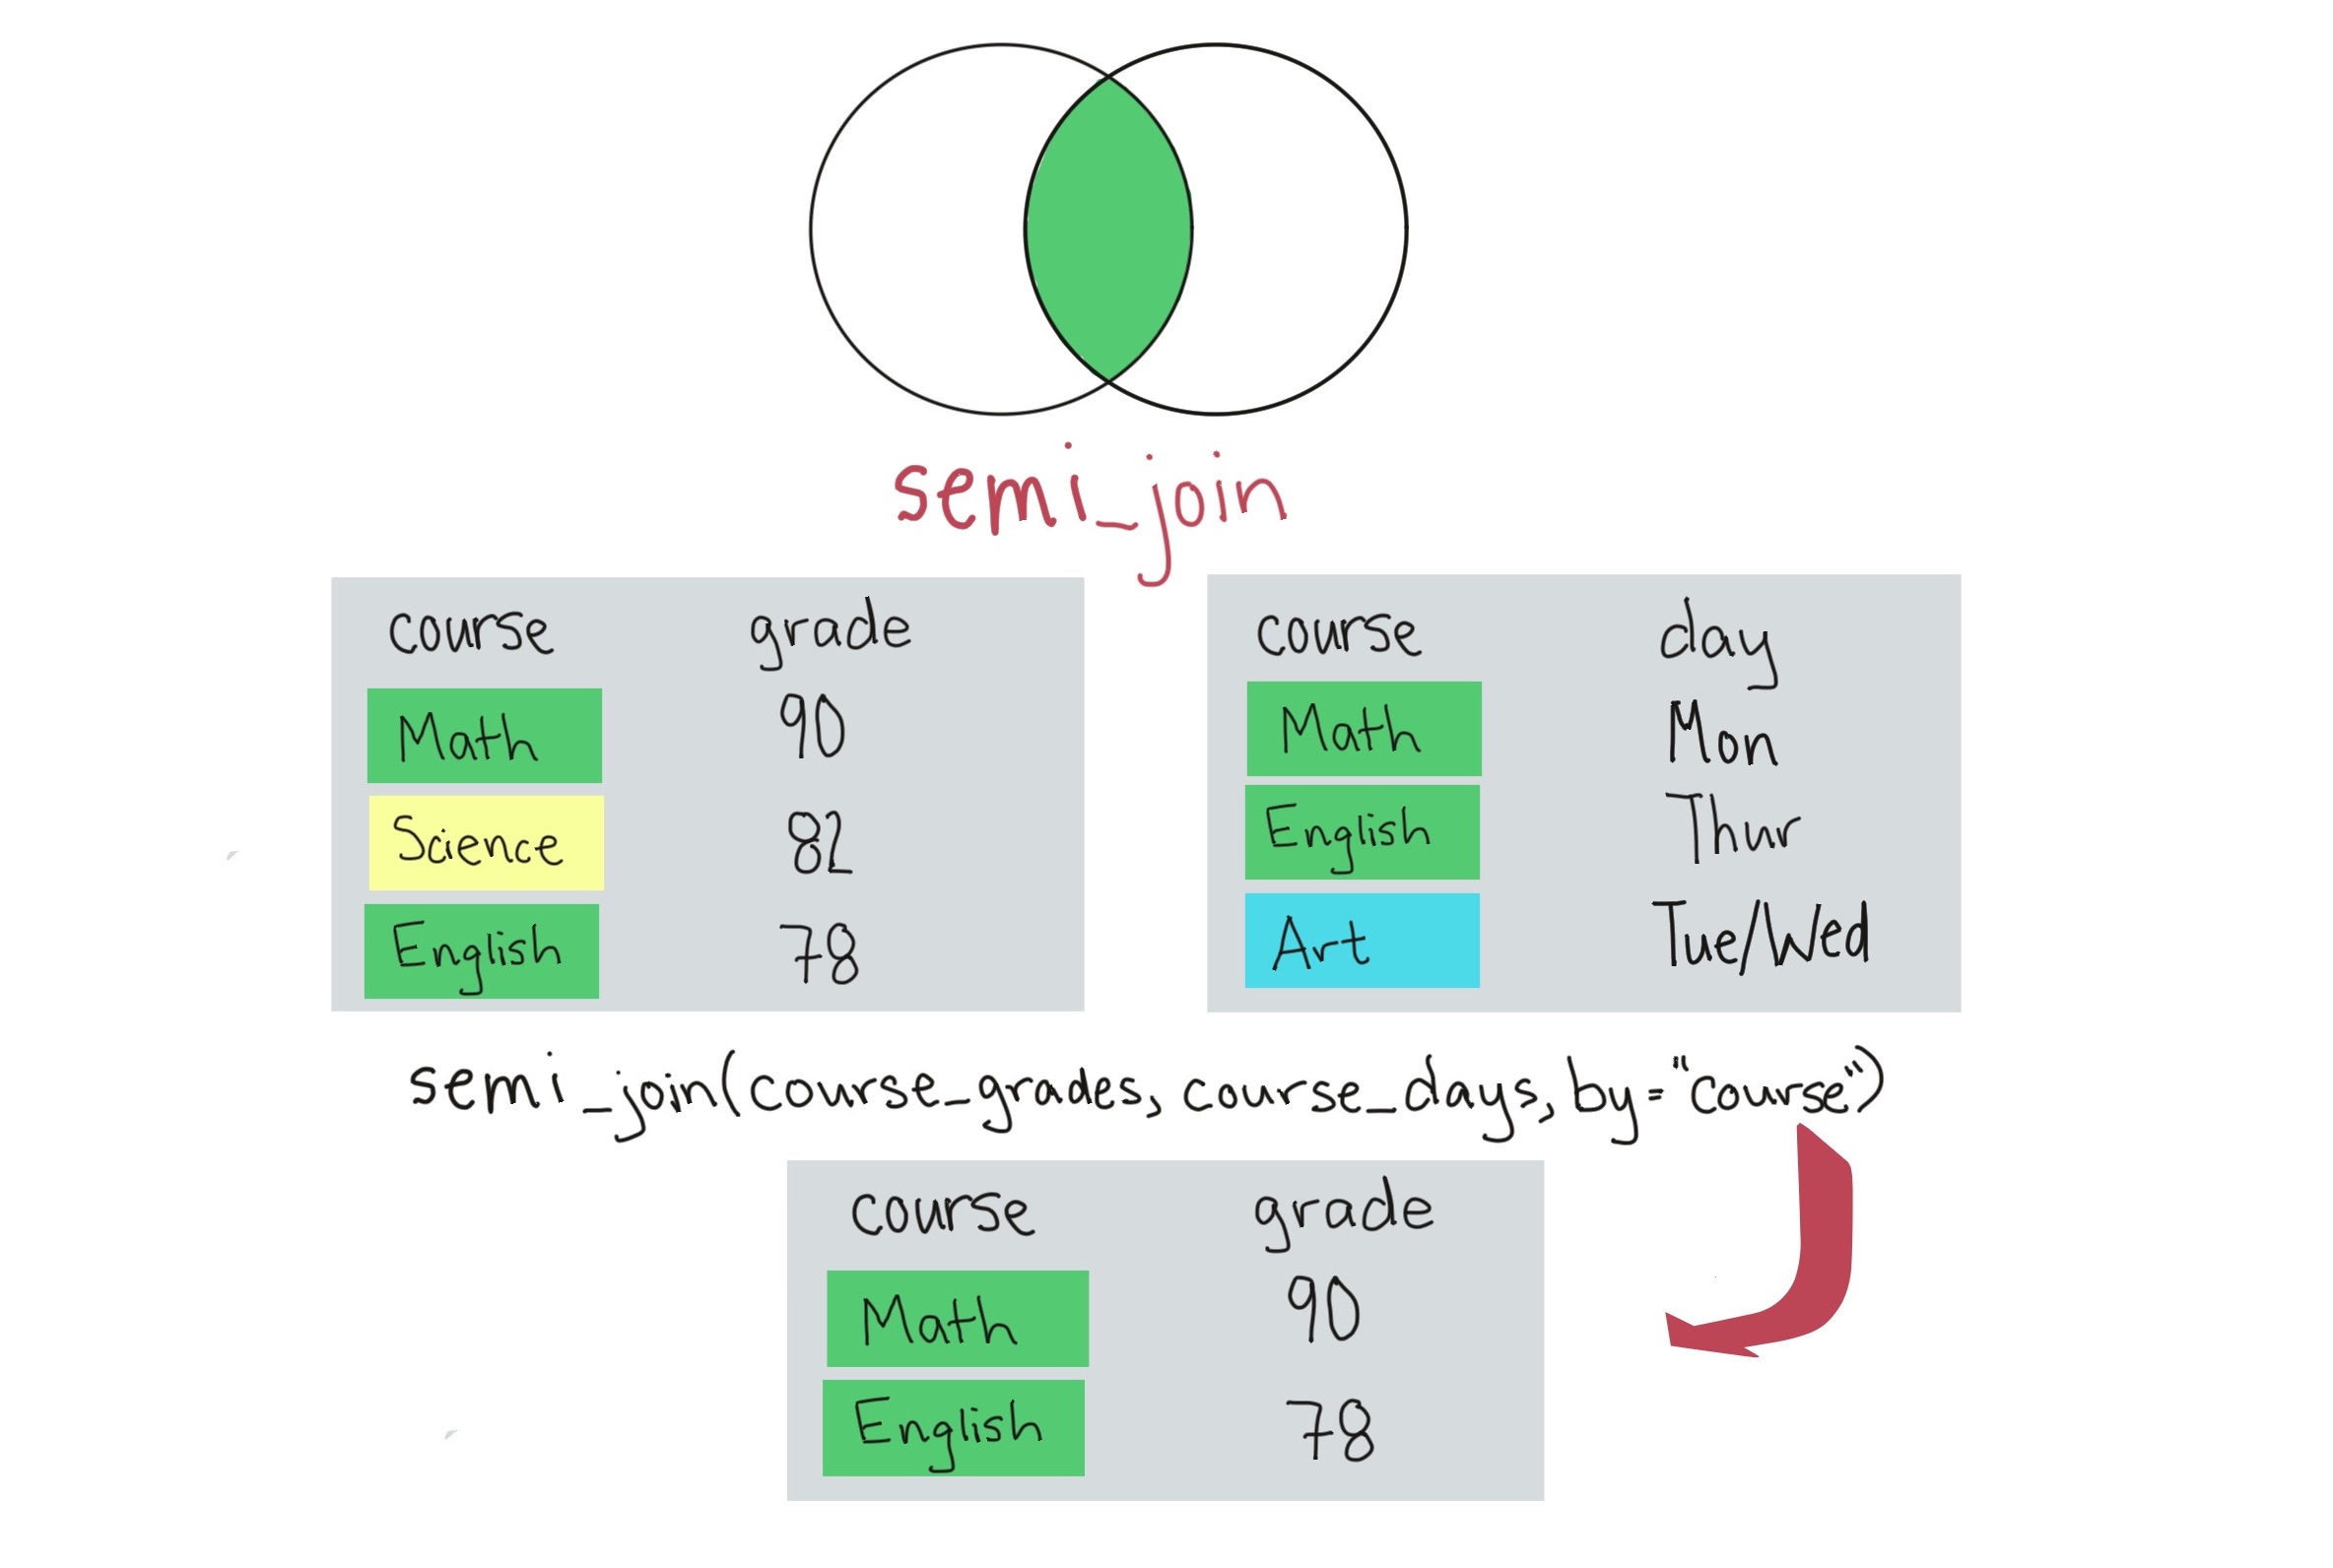 semi_join
course grade
Math 90
Science 82
English 78
course day
Math Mon
English Thur
Art Tue/Wed
semi_join(course_grades, course_days, by="course")
course grade
Math 90
English 78